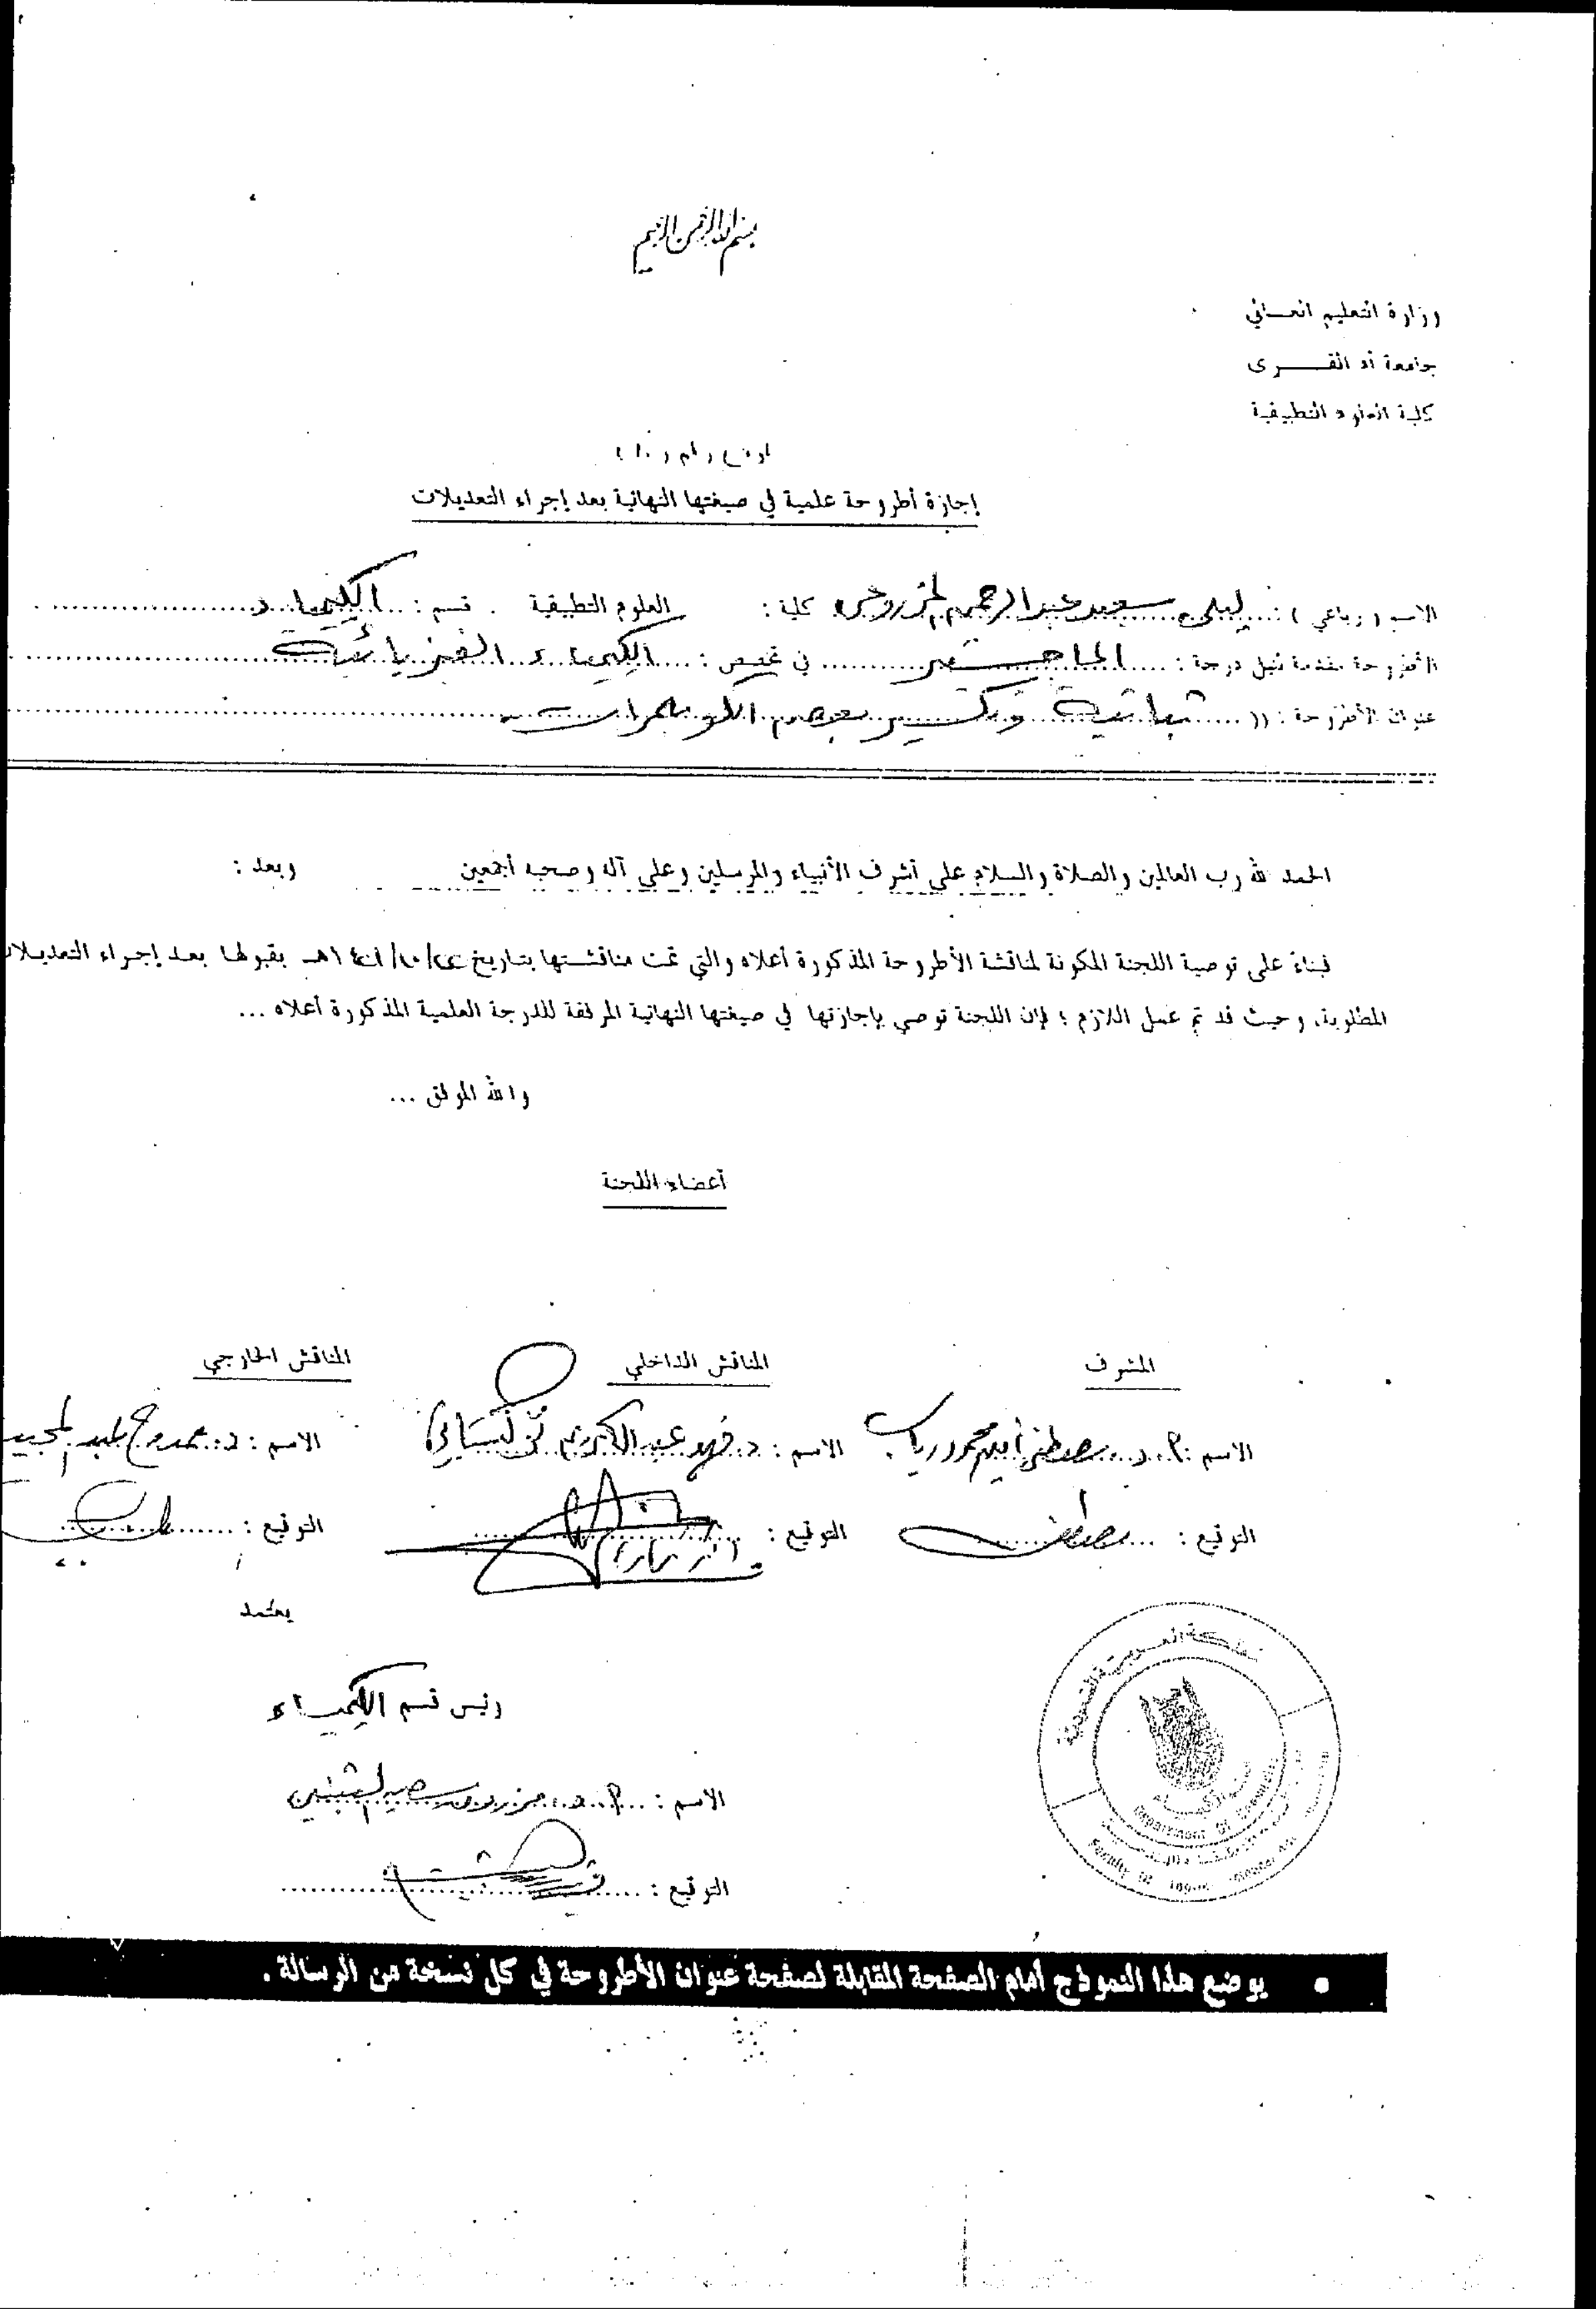 بسم الله الرحمن الرحيم
وزارة التعليم العـــالي
جامعة أم القــــــرى
كلية العلوم التطبيقية
إجازة أطروحة علمية في صيغتها النهائية بعد إجراء التعديلات
الاسم ( رباعي ) : ليلى سعيد عبد الرحمن كلية : العلوم التطبيقية . قسم : الكيمياء
الأطروحة مقدمة لنيل درجة : الماجستير في تخصص : الكيمياء الفيزيائية
عنوان الأطروحة : (( ثباتية وتكسير بعض
الحمد لله رب العالمين والصلاة والسلام على أشرف الأنبياء والمرسلين وعلى آله وصحبه أجمعين وبعد :
فبناءً على توصية اللجنة المكونة لمناقشة الأطروحة المذكورة أعلاه والتي تمت مناقشتها بتاريخ هـ بقبولها بعد إجراء التعديلات
المطلوبة، وحيث قد تم عمل اللازم ؛ فإن اللجنة توصي بإجازتها في صيغتها النهائية المرفقة للدرجة العلمية المذكورة أعلاه ...
والله الموفق ...
أعضاء اللجنة
المشرف المناقش الداخلي المناقش الخارجي
الاسم : أ.د. مصطفى محمود الاسم : د. فهد عبد الكريم الاسم : د. ممدوح عبد المجيد
التوقيع : مصطفى التوقيع : التوقيع :
يعتمد
رئيس قسم الكيمياء
الاسم : أ.د. سعيد
التوقيع :
المملكة العربية السعودية
Department Of
Faculty Of
• يوضع هذا النموذج أمام الصفحة المقابلة لصفحة عنوان الأطروحة في كل نسخة من الرسالة .